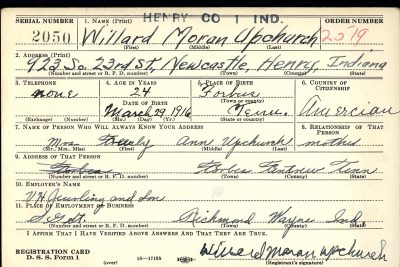 HENRY CO 1 IND.
SERIAL NUMBER 1. NAME (Print) ORDER NUMBER
2050 Willard Moran Upchurch 2519
(First) (Middle) (Last)
2. ADDRESS (Print)
923 So. 23rd St, Newcastle, Henry, Indiana
(Number and street or R. F. D. number) (Town) (County) (State)
3. TELEPHONE 4. AGE IN YEARS 5. PLACE OF BIRTH 6. COUNTRY OF CITIZENSHIP
none 24 Forbus
DATE OF BIRTH (Town or county)
March 29 1916 Tenn. Amercian
(Exchange) (Number) (Mo.) (Day) (Yr.) (State or country)
7. NAME OF PERSON WHO WILL ALWAYS KNOW YOUR ADDRESS 8. RELATIONSHIP OF THAT PERSON
Mrs Ann Upchurch mother
(Mr., Mrs., Miss) (First) (Middle) (Last)
9. ADDRESS OF THAT PERSON
Forbus Forbus Fentress Tenn
(Number and street or R. F. D. number) (Town) (County) (State)
10. EMPLOYER'S NAME
and Son
11. PLACE OF EMPLOYMENT OR BUSINESS
Richmond Wayne Ind.
(Number and street or R. F. D. number) (Town) (County) (State)
I AFFIRM THAT I HAVE VERIFIED ABOVE ANSWERS AND THAT THEY ARE TRUE.
REGISTRATION CARD
D. S. S. Form 1 16—17105 Willard Moran Upchurch
(Registrant's signature)